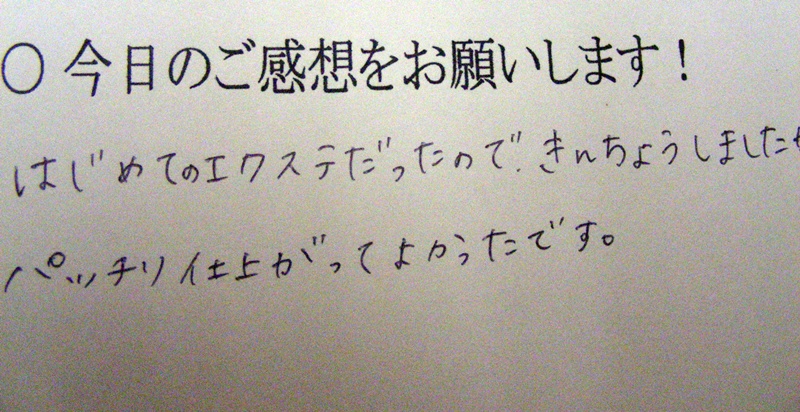 ○ 今日のご感想をお願いします！
はじめてのエクステだったので、きんちょうしました
パッチリ仕上がってよかったです。